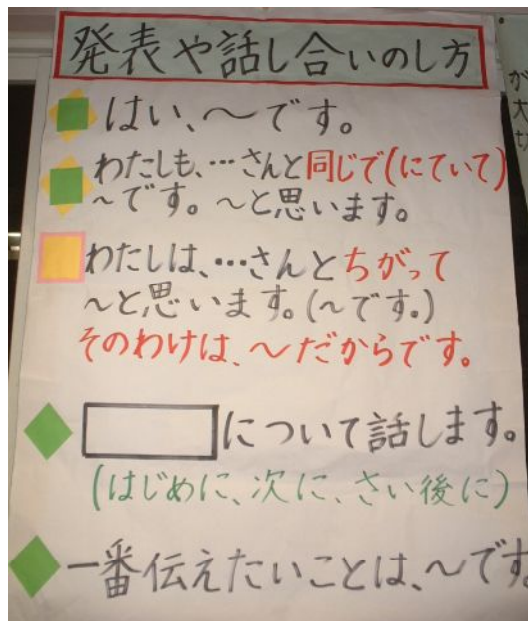 発表や話し合いのし方
はい、～です。
わたしも、…さんと同じで(にていて)
～です。～と思います。
わたしは、…さんとちがって
～と思います。(～です。)
そのわけは、～だからです。
について話します。
(はじめに、次に、さい後に)
一番伝えたいことは、～です。
が
大
切